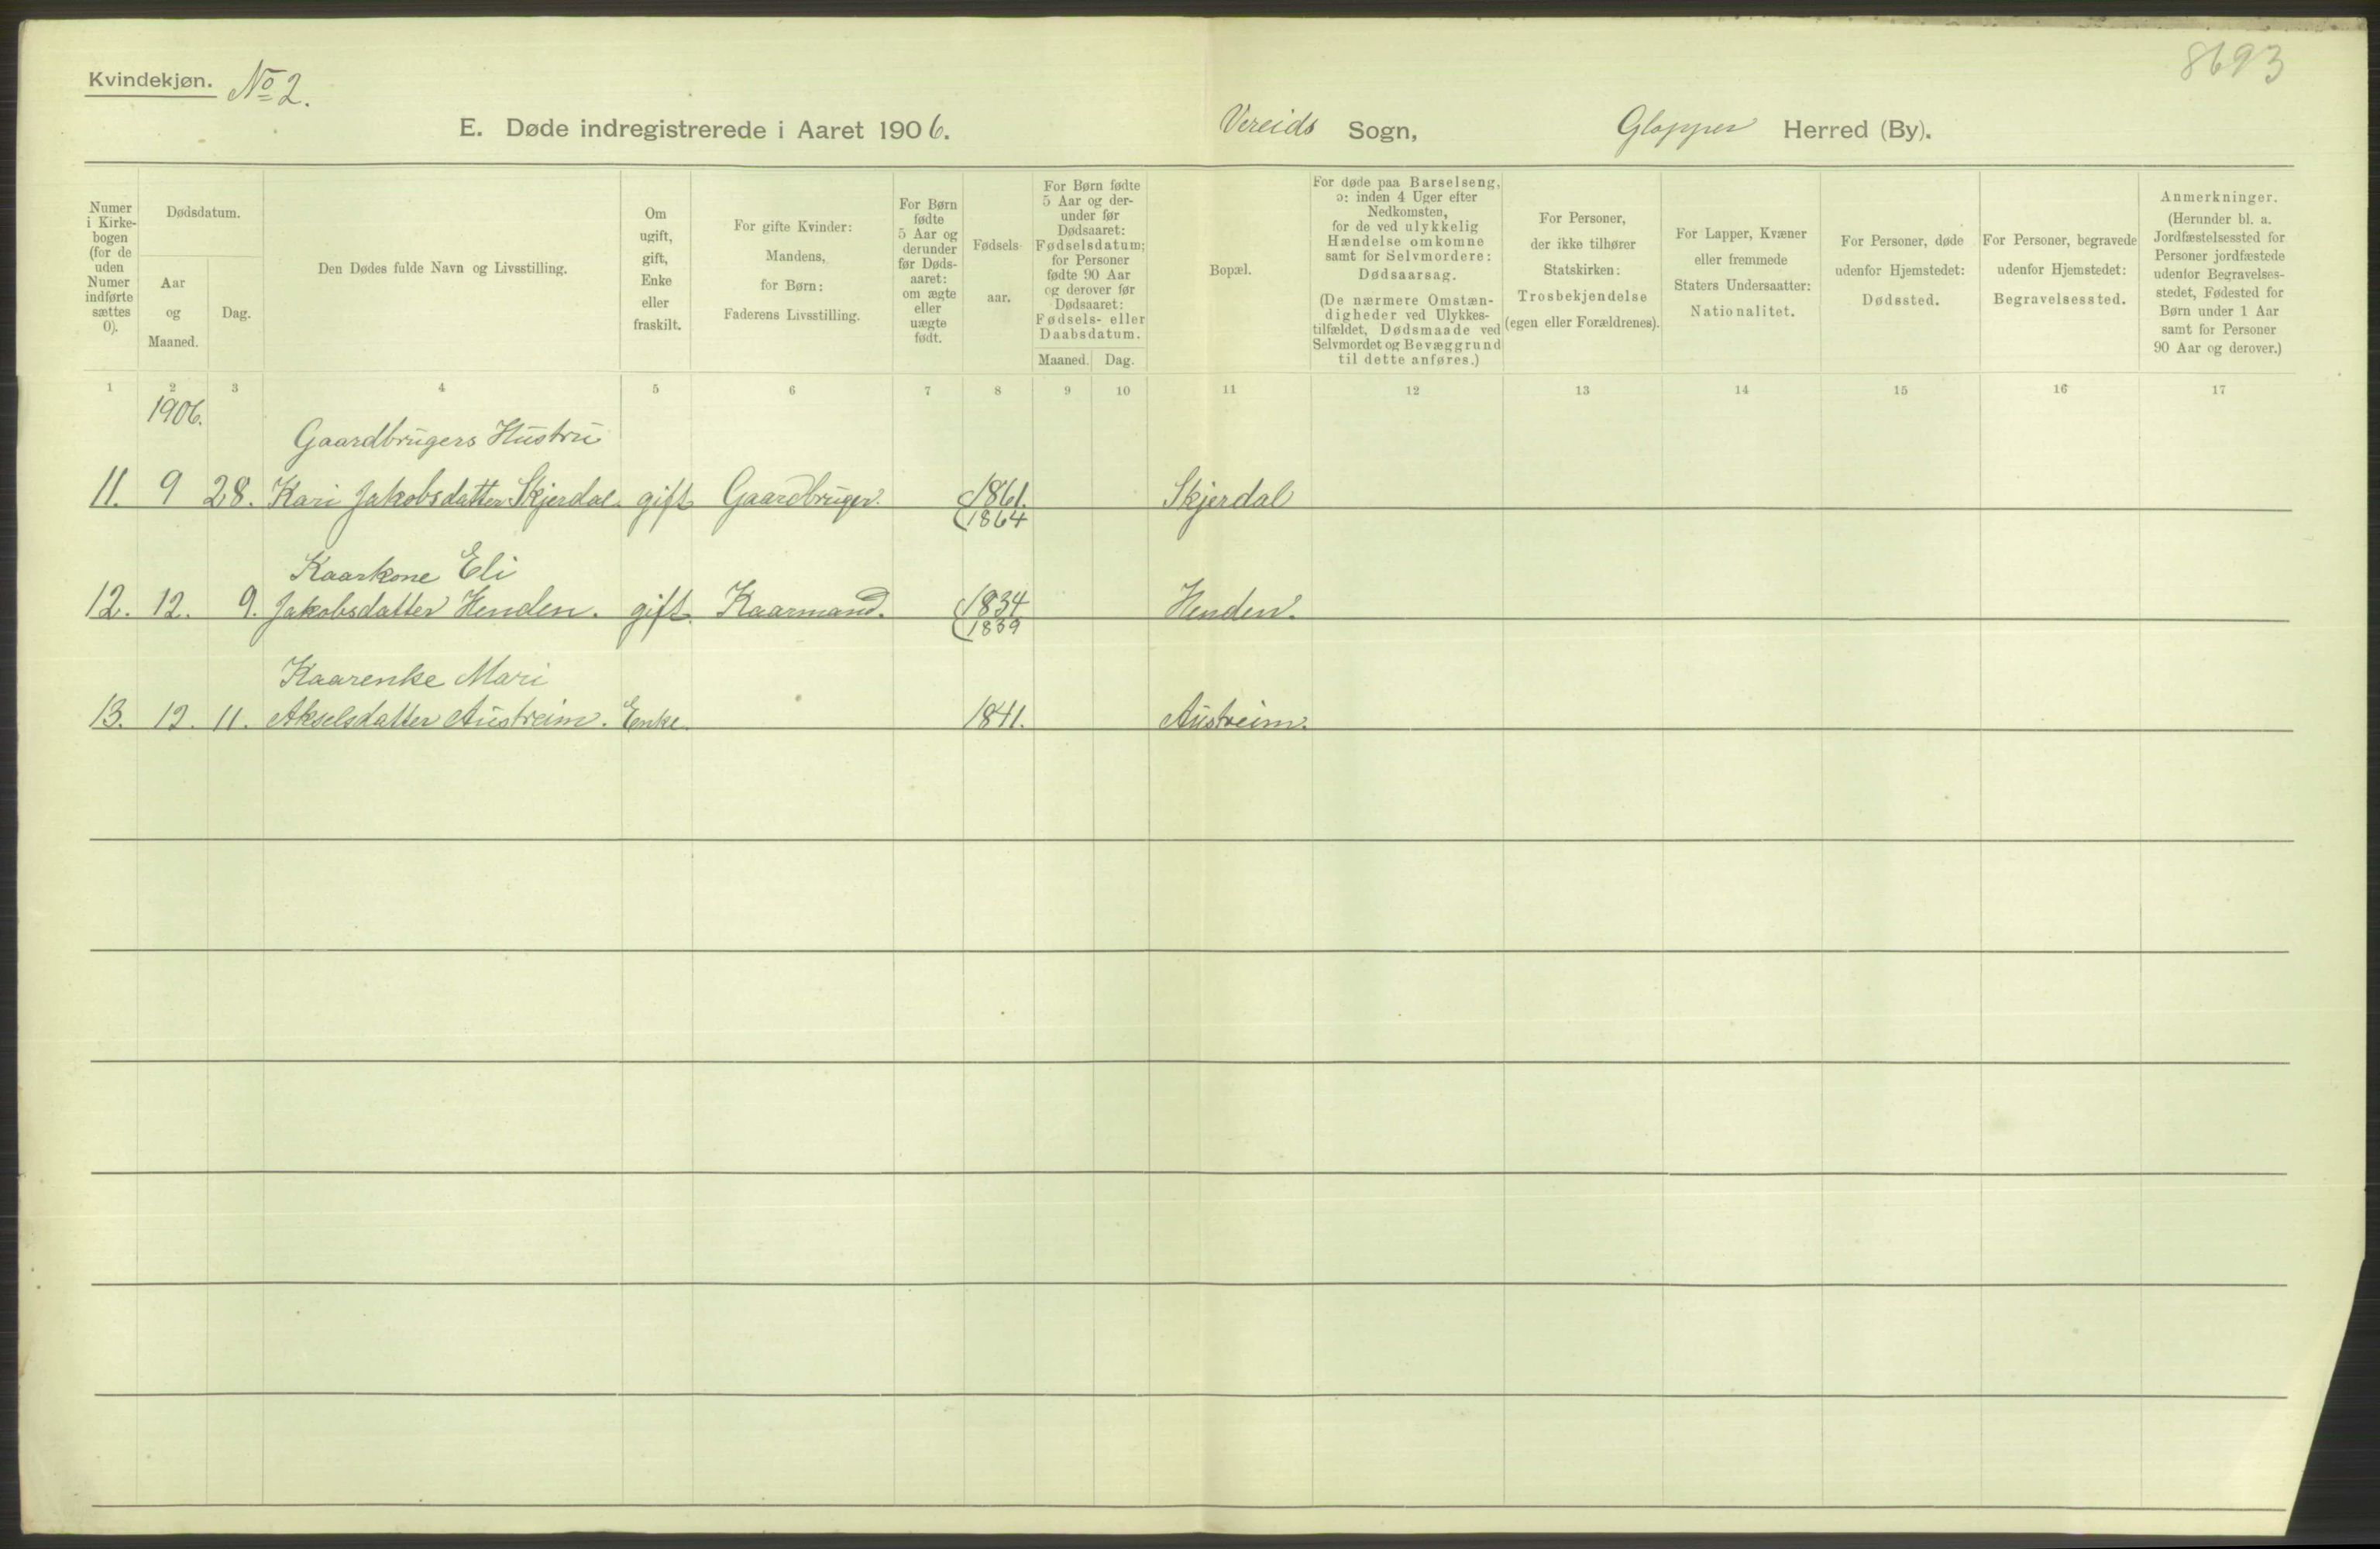 8693
Kvindekjøn. No 2.
E. Døde indregistrerede i Aaret 1906. Vereids Sogn, Gloppen Herred (By).
Numer i Kirkebogen (for de uden Numer indførte sættes 0).
Dødsdatum.
Aar og Maaned.
Dag.
Den Dødes fulde Navn og Livsstilling.
Om ugift, gift, Enke eller fraskilt.
For gifte Kvinder: Mandens, for Børn: Faderens Livsstilling.
For Børn fødte 5 Aar og derunder før Dødsaaret: om ægte eller uægte født.
Fødselsaar.
For Børn fødte 5 Aar og derunder før Dødsaaret: Fødselsdatum; for Personer fødte 90 Aar og derover før Dødsaaret: Fødsels- eller Daabsdatum.
Maaned. Dag.
Bopæl.
For døde paa Barselseng, ɔ: inden 4 Uger efter Nedkomsten, for de ved ulykkelig Hændelse omkomne samt for Selvmordere: Dødsaarsag. (De nærmere Omstændigheder ved Ulykkestilfældet, Dødsmaade ved Selvmordet og Bevæggrund til dette anføres.)
For Personer, der ikke tilhører Statskirken: Trosbekjendelse (egen eller Forældrenes).
For Lapper, Kvæner eller fremmede Staters Undersaatter: Nationalitet.
For Personer, døde udenfor Hjemstedet: Dødssted.
For Personer, begravede udenfor Hjemstedet: Begravelsessted.
Anmerkninger. (Herunder bl. a. Jordfæstelsessted for Personer jordfæstede udenfor Begravelsesstedet, Fødested for Børn under 1 Aar samt for Personer 90 Aar og derover.)
1 2 3 4 5 6 7 8 9 10 11 12 13 14 15 16 17
1906.
Gaardbrugers Hustru
11. 9 28. Kari Jakobsdatter Skjerdal. gift Gaardbruger. 1861. Skjerdal
(1864
Kaarkone Eli
12. 12. 9. Jakobsdatter Henden. gift. Kaarmand. 1834 Henden.
(1839
Kaarenke Mari
13. 12. 11. Akselsdatter Austreim. Enke. 1841. Austreim.